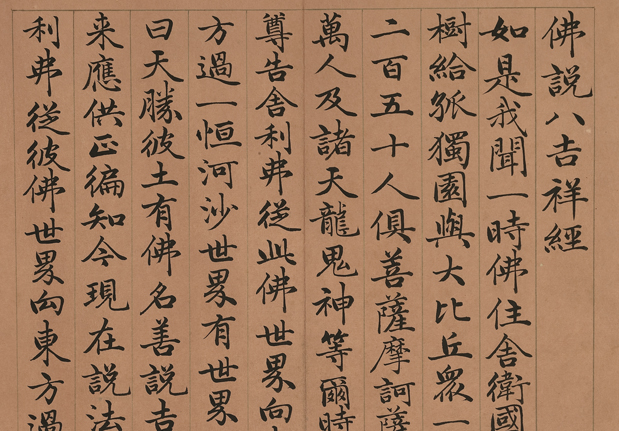 佛説八吉祥經
如是我聞一時佛住舍衛國
樹給孤獨園與大比丘衆一
二百五十人俱菩薩摩訶薩
萬人及諸天龍鬼神等爾時
尊告舍利弗從此佛世界向
方過一恒河沙世界有世界
曰天勝彼土有佛名善説吉
来應供正徧知今現在説法
利弗從彼佛世界向東方過